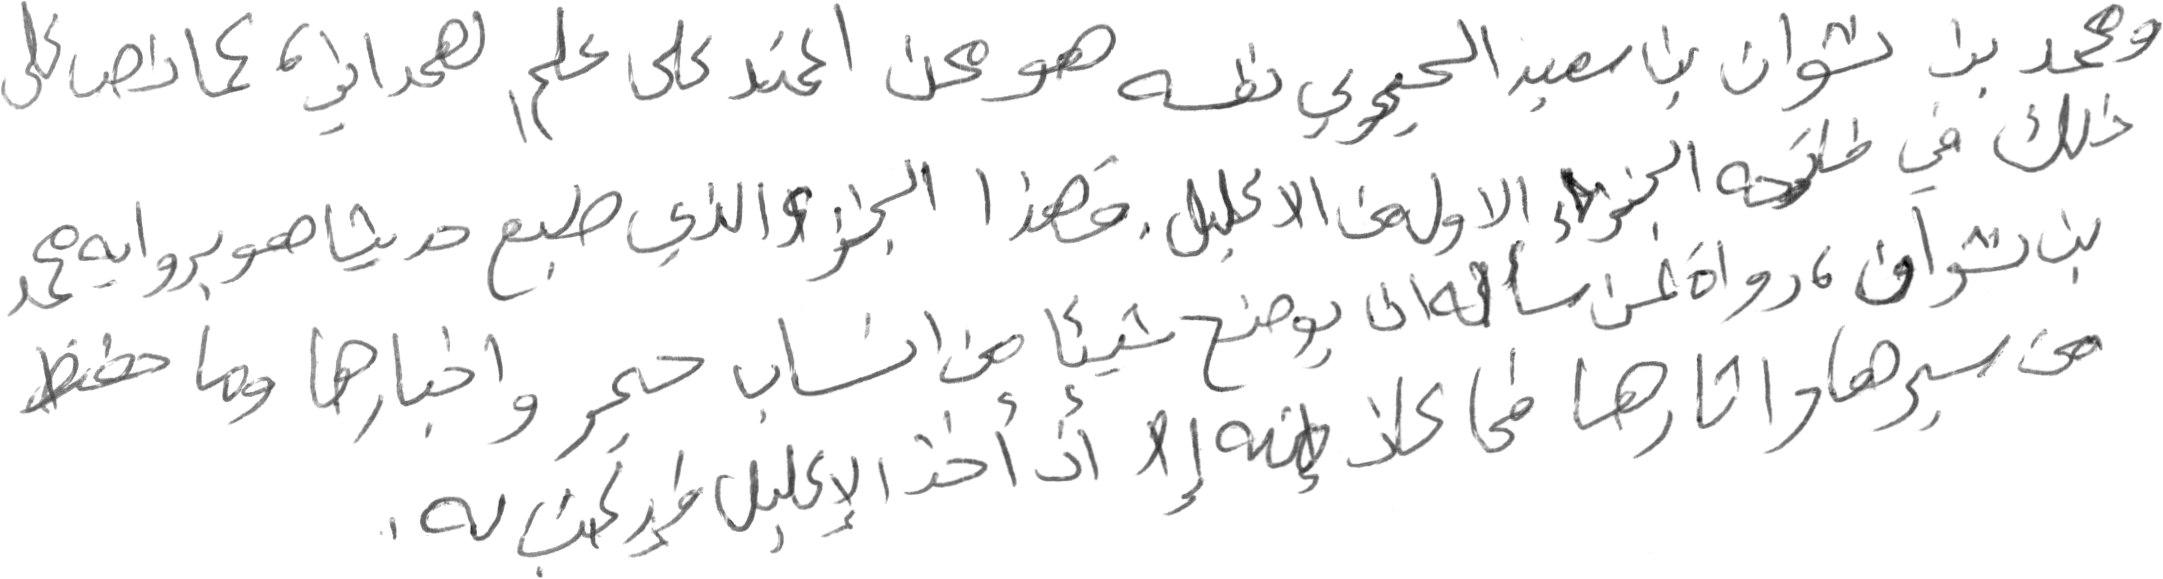 ومحمد بن نشوان بن سعيد الحميري نفسه هو ممن اعتمد على علم الهمداني، كما نص على
ذلك في فاتحة الجزء الاول من الاكليل. فهذا الجزء الذي طبع حديثا هو برواية محمد
بن نشوان، رواة لمن سأله ان يوضح شيئا من انساب حمير واخبارها وما حفظ
من سيرها واثارها فما كان منه إلا أن أخذ الإكليل فإذ كتب له.